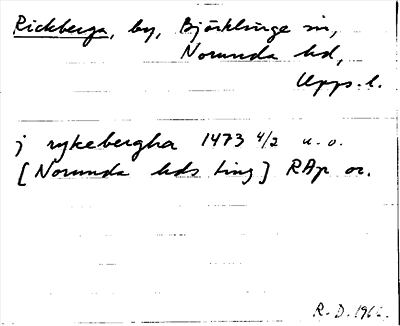 Rickberga, by, Björklinge sn,
Norunda hd,
Upps. l.
j rykebergha 1473 4/2 u. o.
[Norunda hds ting] RAp or.
R. D.